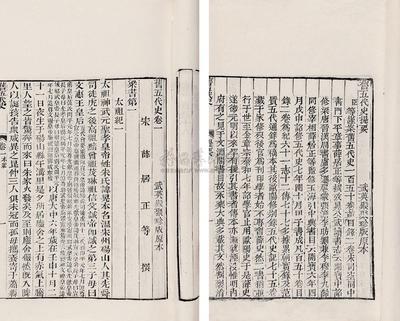 舊五代史提要
武英殿聚珍版原本
臣等謹案舊五代史一百五十卷並目錄二卷宋司空同中
書門下平章事薛居正等撰考晁公武讀書志云開寶中詔
修梁唐晉漢周書盧多遜扈蒙張澹李昉劉兼李穆李九齡
同修宰相薛居正等監修玉海引中興書目云開寶六年四
月戊申詔修五代史七年閏十月甲子書成凡百五十卷目
錄二卷為紀六十一志十二傳七十七多據累朝實錄及范
質五代通錄為稿本其後歐陽修別撰五代史記七十五卷
藏于家修沒後官為刊印學者始不專習薛史然二書猶並
行于世至金章宗泰和七年詔學官止用歐陽史于是薛史
遂微元明以來罕有援引其書者傳本亦漸就湮沒惟明內
府有之見于文淵閣書目故永樂大典多載其文然割裂淆
舊五代史卷一
武英殿聚珍版原本
宋薛居正等撰
梁書第一
太祖紀一
太祖神武元聖孝皇帝姓朱氏諱晃本名溫宋州碭山人其先舜
司徒虎之後高祖黯曾祖茂琳祖信父誠帝即誠之第三子母曰
文惠王皇后
以唐大中六年歲在壬申十月二
十一日夜生于碭山縣午溝里是夕所居廬舍之上有赤氣上騰
里人望之皆驚奔而來曰朱家火發矣及至則廬舍儼然既入鄰
人以誕孩告衆咸異之昆仲三人俱未冠而孤母攜養寄于蕭縣